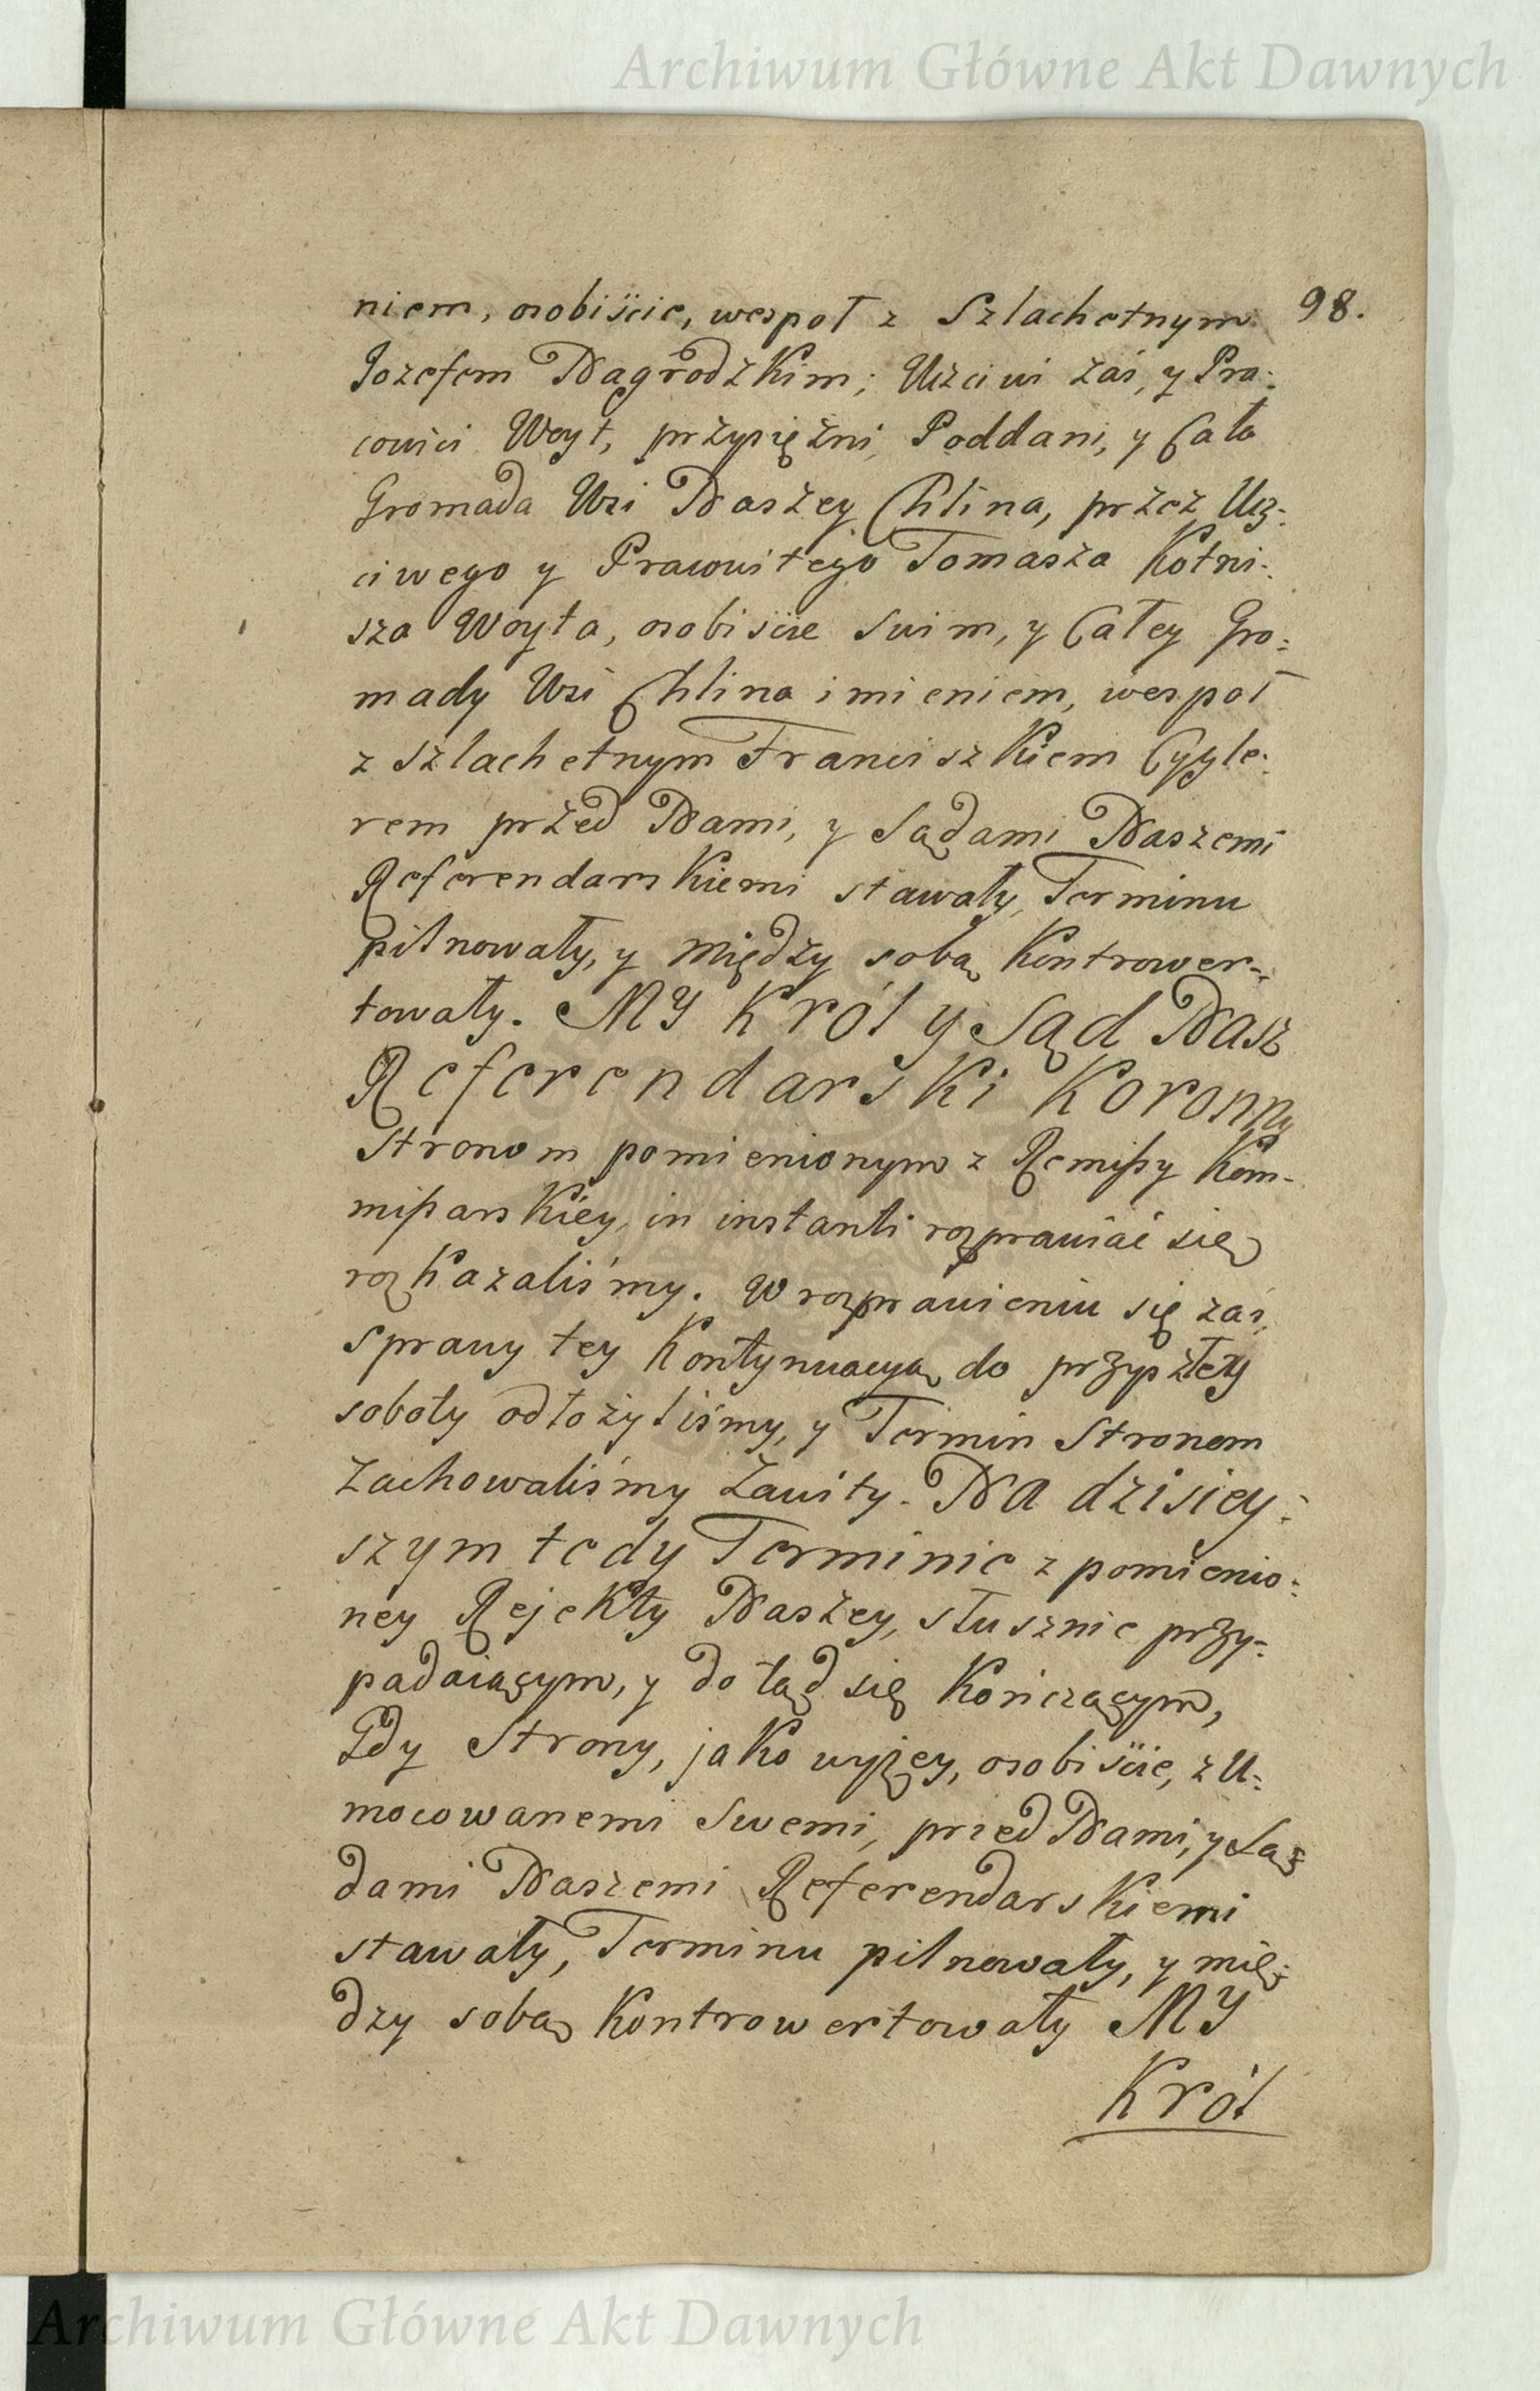 Archiwum Główne Akt Dawnych
98.
niem, osobiście, wespoł z Szlachetnym
Jozefem Nagrodzkim; Uczciwi zaś, y Pra:
cowici Woyt, przysiężni, Poddani, y Cała
Gromada Wsi Naszey Chlina, przez Ucz:
ciwego y Prawowitego Tomasza Kotni:
sza Woyta, osobiscie swim, y Całey Gro:
mady Wsi Chlina imieniem, wespoł
z szlachetnym Franciszkiem Cygle:
rem przed Nami, y Sądami Naszemi
Referendarskiemi stawały, Terminu
pilnowały, y między sobą Kontrower-
towały. MY Król y Sąd Nasz
Referendarski Koronny
Stronom pomienionym z Remißy Kom-
mißarskiéy, in instanti rozprawiać się
rozkazaliśmy. W rozprawieniu się zaś,
sprawy tey Kontynuacyą do przyszłey
soboty odłożyliśmy, y Termin Stronom
zachowaliśmy Zawity. NA dzisiey:
szym tedy Terminie z pomienio:
ney Rejekty Naszey, słusznie przy-
padaiącym, y do tąd się Kończącym,
Gdy Strony, jako wyżey, osobiście, z U:
mocowanemi Swemi, przed Nami, y Są:
dami Naszemi Referendarskiemi
stawały, Terminu pilnowały, y mię:
dzy sobą Kontrowertowały MY
Król
Archiwum Główne Akt Dawnych